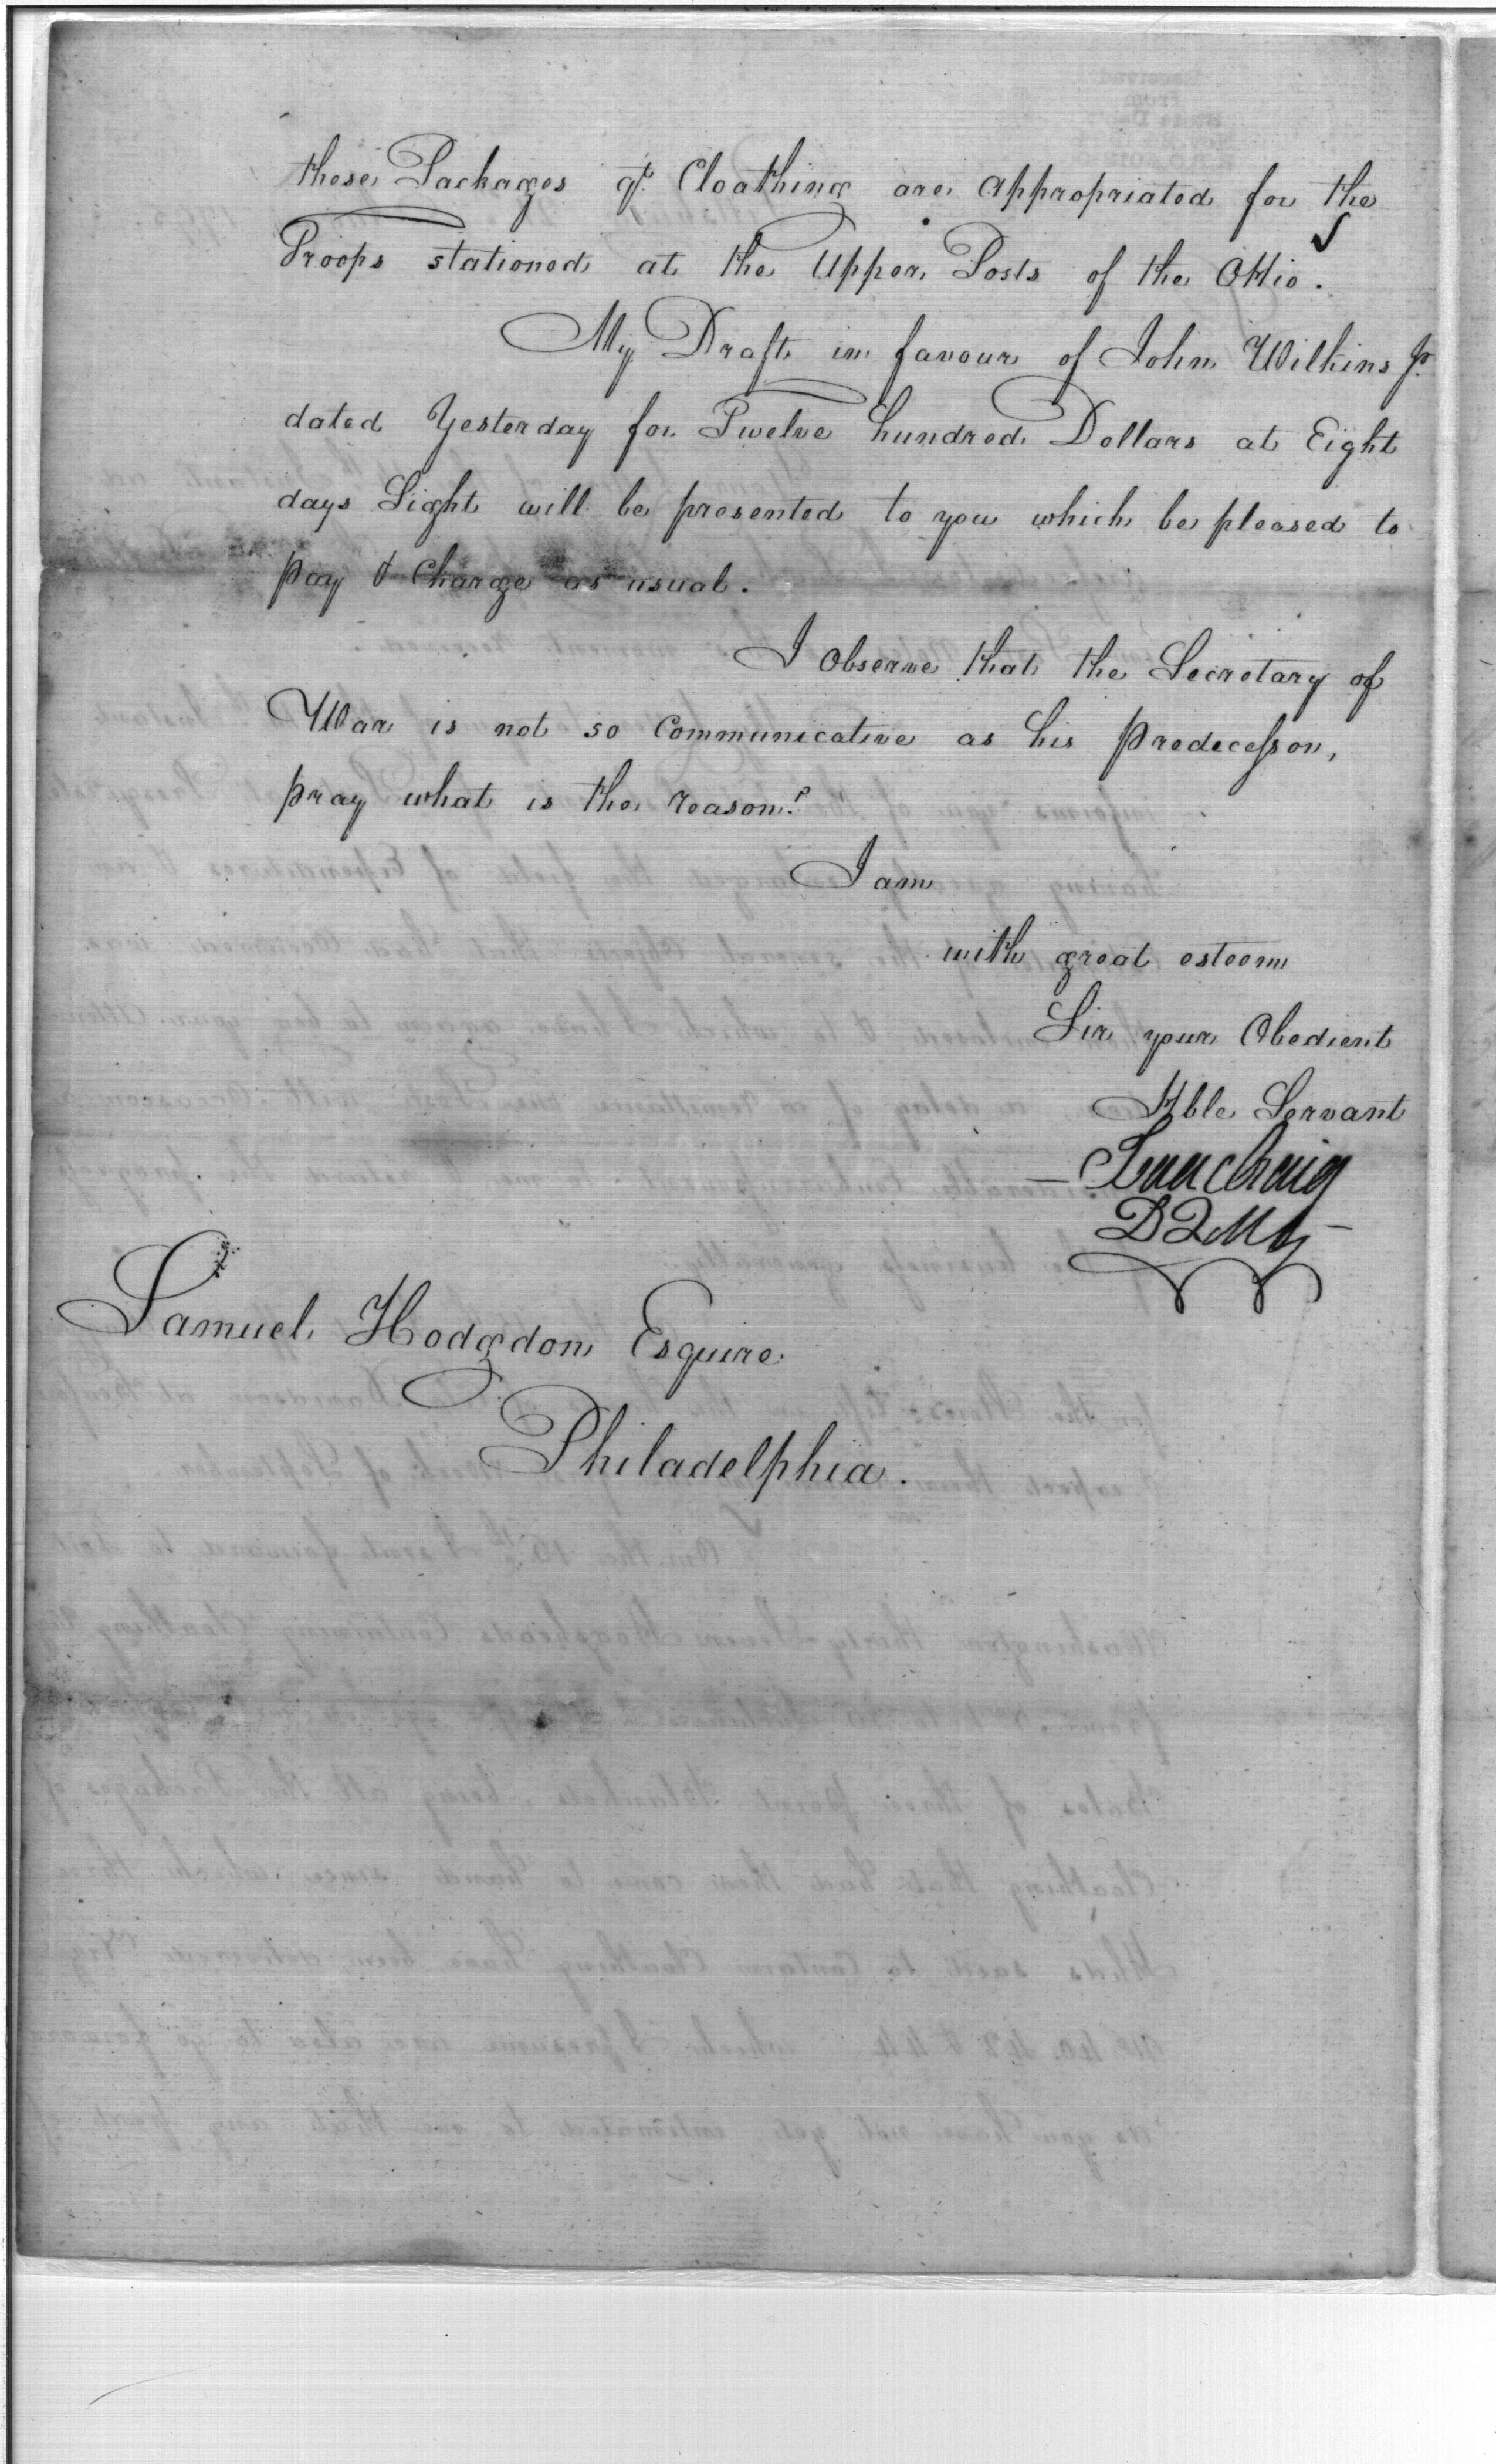 these Packages of Cloathing are appropriated for the
Troops stationed at the Upper Posts of the Ohio.
My Draft in favour of John Wilkins Jr.
dated Yesterday for Twelve hundred Dollars at Eight
days Sight will be presented to you which be pleased to
pay & Charge as usual.
I observe that the Secretary of
War is not so Communicative as his Predecessor,
pray what is the reason?
I am
with great esteem
Sir your Obedient
Hble Servant
Isaac Craig
DQMG
Samuel Hodgdon Esquire
Philadelphia.